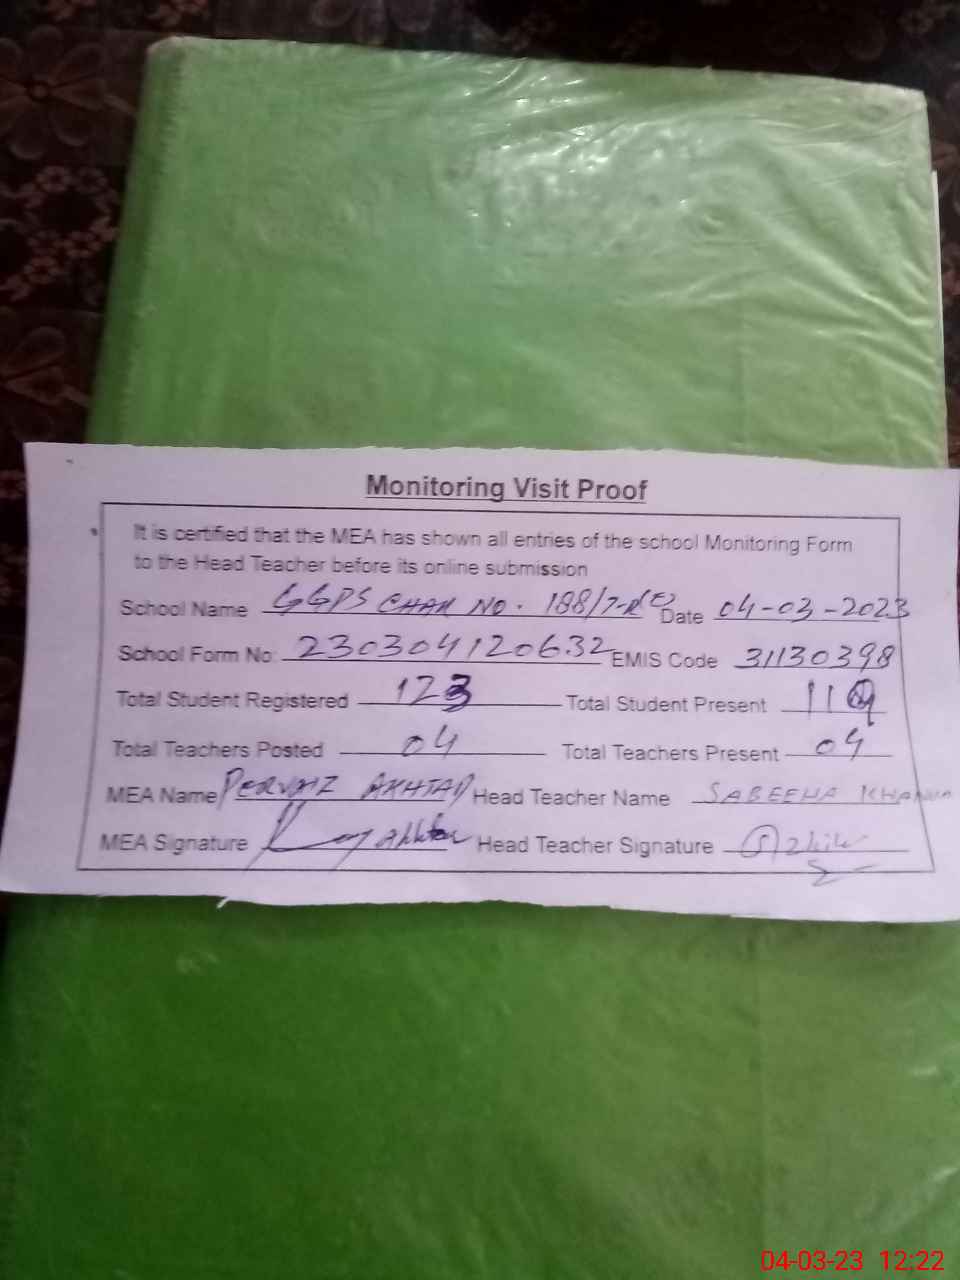 Monitoring Visit Proof
It is certified that the MEA has shown all entries of the school Monitoring Form
to the Head Teacher before its online submission
School Name GGPS CHAK NO. 188/7-R(E) Date 04-03-2023
School Form No: 230304120632 EMIS Code 31130398
Total Student Registered 123 Total Student Present
Total Teachers Posted 04 Total Teachers Present 04
MEA Name PERVAIZ AKHTAR Head Teacher Name SABEEHA KHANUM
MEA Signature Head Teacher Signature
04-03-23 12:22